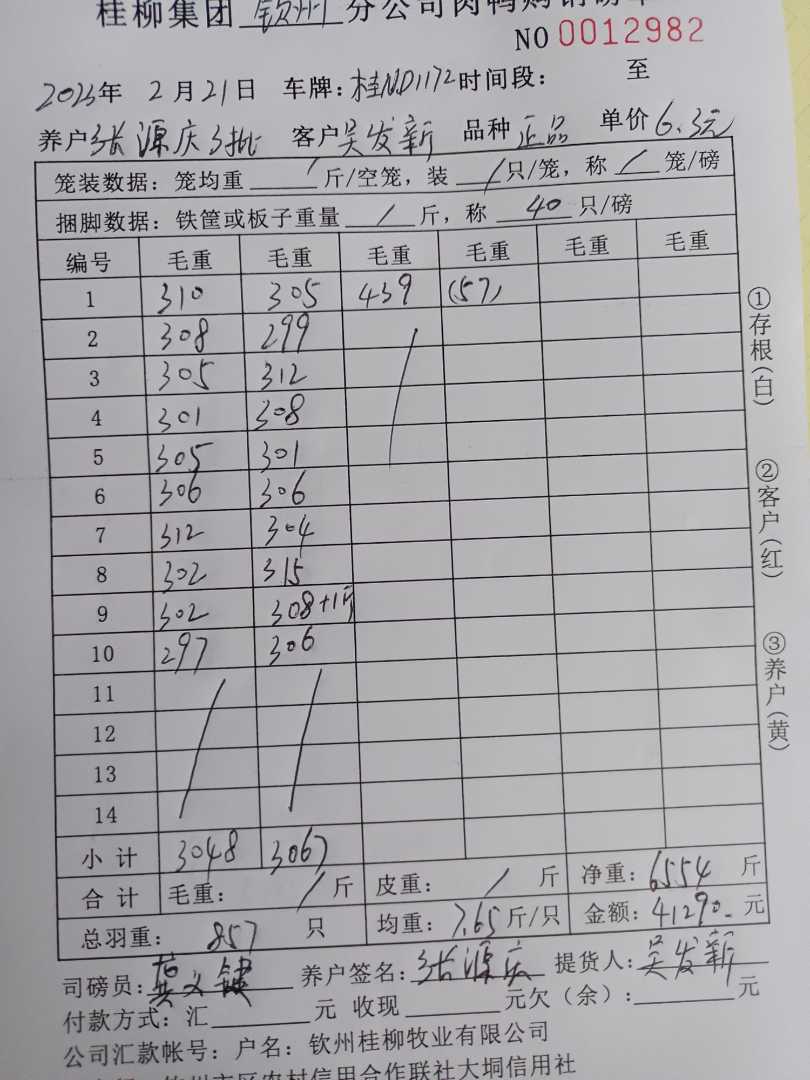 桂柳集团 钦州 分公司肉鸭购销磅单
NO 0012982
2023年 2月21日 车牌:桂ND1172 时间段: 至
养户 张源庆3批 客户 吴发新 品种 正品 单价 6.3元
笼装数据:笼均重 / 斤/空笼,装 / 只/笼,称 / 笼/磅
捆脚数据:铁筐或板子重量 / 斤,称 40 只/磅
编号 毛重 毛重 毛重 毛重 毛重 毛重
1 310 305 439 (57)
2 308 299
3 305 312
4 301 308
5 305 301
6 306 306
7 312 304
8 302 315
9 302 308+1斤
10 297 306
11
12
13
14
小计 3048 3067
合计 毛重: / 斤 皮重: / 斤 净重: 6554 斤
总羽重: 857 只 均重: 7.65 斤/只 金额: 41290- 元
司磅员: 养户签名: 张源庆 提货人: 吴发新
付款方式:汇 元 收现 元欠(余): 元
公司汇款帐号:户名:钦州桂柳牧业有限公司
钦州市区农村信用合作联社大垌信用社
①存根(白)
②客户(红)
③养户(黄)